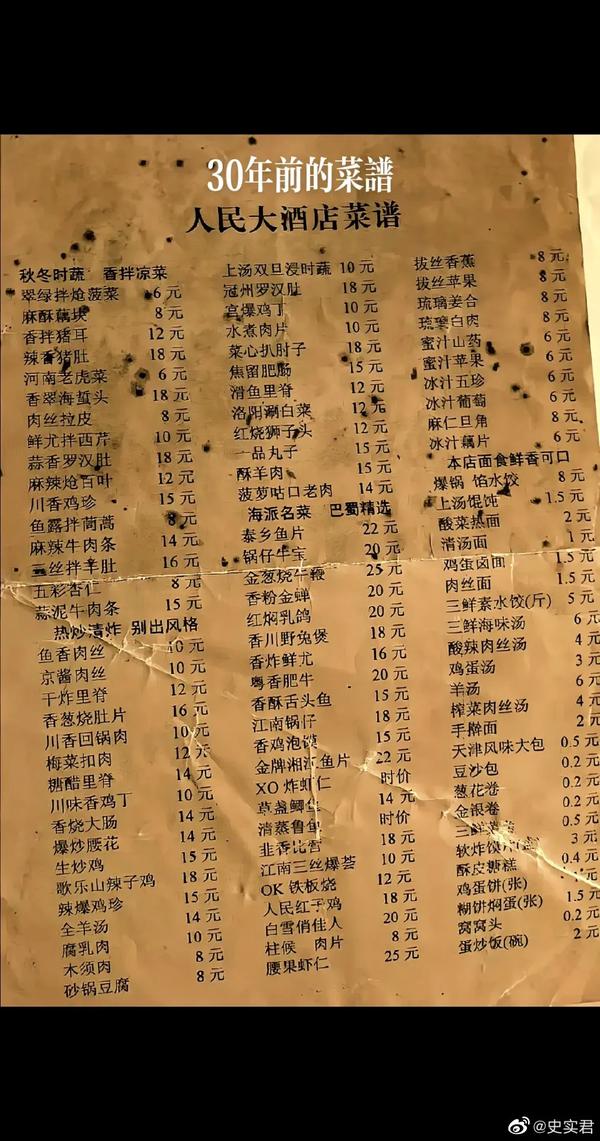 30年前的菜譜
人民大酒店菜谱
秋冬时蔬 香拌凉菜
翠绿拌炝菠菜 6元
麻酥藕块 8元
香拌猪耳 12元
辣香猪肚 18元
河南老虎菜 6元
香翠海蜇头 18元
肉丝拉皮 8元
鲜尤拌西芹 10元
蒜香罗汉肚 18元
麻辣炝百叶 12元
川香鸡珍 15元
鱼露拌茼蒿 8元
麻辣牛肉条 14元
三丝拌羊肚 16元
五彩杏仁 8元
蒜泥牛肉条 15元
热炒清炸 别出风格
鱼香肉丝 10元
京酱肉丝 10元
干炸里脊 12元
香葱烧肚片 16元
川香回锅肉 10元
梅菜扣肉 12元
糖醋里脊 14元
川味香鸡丁 10元
香烧大肠 14元
爆炒腰花 14元
生炒鸡 15元
歌乐山辣子鸡 18元
辣爆鸡珍 15元
全羊汤 14元
腐乳肉 10元
木须肉 8元
砂锅豆腐 8元
上汤双旦浸时蔬 10元
冠州罗汉肚 18元
宫爆鸡丁 10元
水煮肉片 10元
菜心扒肘子 18元
焦留肥肠 15元
滑鱼里脊 12元
洛阳涮白菜 12元
红烧狮子头 12元
一品丸子 15元
酥羊肉 15元
菠萝咕口老肉 14元
海派名菜 巴蜀精选
泰乡鱼片 22元
锅仔牛宝 20元
金葱烧牛鞭 25元
香粉金蝉 20元
红焖乳鸽 20元
香川野兔煲 18元
香炸鲜尤 16元
粤香肥牛 20元
香酥舌头鱼 15元
江南锅仔 18元
香鸡泡馍 15元
金牌湘江鱼片 22元
XO炸虾仁 时价
草盏鲫鱼 14元
清蒸鲁鱼 时价
韭香比宫 18元
江南三丝爆荟 10元
OK铁板烧 12元
人民红子鸡 18元
白雪俏佳人 20元
柱候 肉片 8元
腰果虾仁 25元
拔丝香蕉 8元
拔丝苹果 8元
琉璃姜合 8元
琉璃白肉 8元
蜜汁山药 8元
蜜汁苹果 8元
冰汁五珍 8元
冰汁葡萄 8元
麻仁旦角 8元
冰汁藕片 6元
本店面食鲜香可口
爆锅 馅水饺 8元
上汤馄饨 1.5元
酸菜热面 2元
清汤面 1元
鸡蛋卤面 1.5元
肉丝面 1.5元
三鲜素水饺(斤) 5元
三鲜海味汤 6元
酸辣肉丝汤 4元
鸡蛋汤 3元
羊汤 6元
榨菜肉丝汤 4元
手擀面 2元
天津风味大包 0.5元
豆沙包 0.2元
葱花卷 0.2元
金银卷 0.5元
三鲜 0.2元
软炸馍片 3元
酥皮糖糕 0.4元
鸡蛋饼(张) 1元
糊饼焖蛋(张) 1.5元
窝窝头 0.2元
蛋炒饭(碗) 2元
@史实君